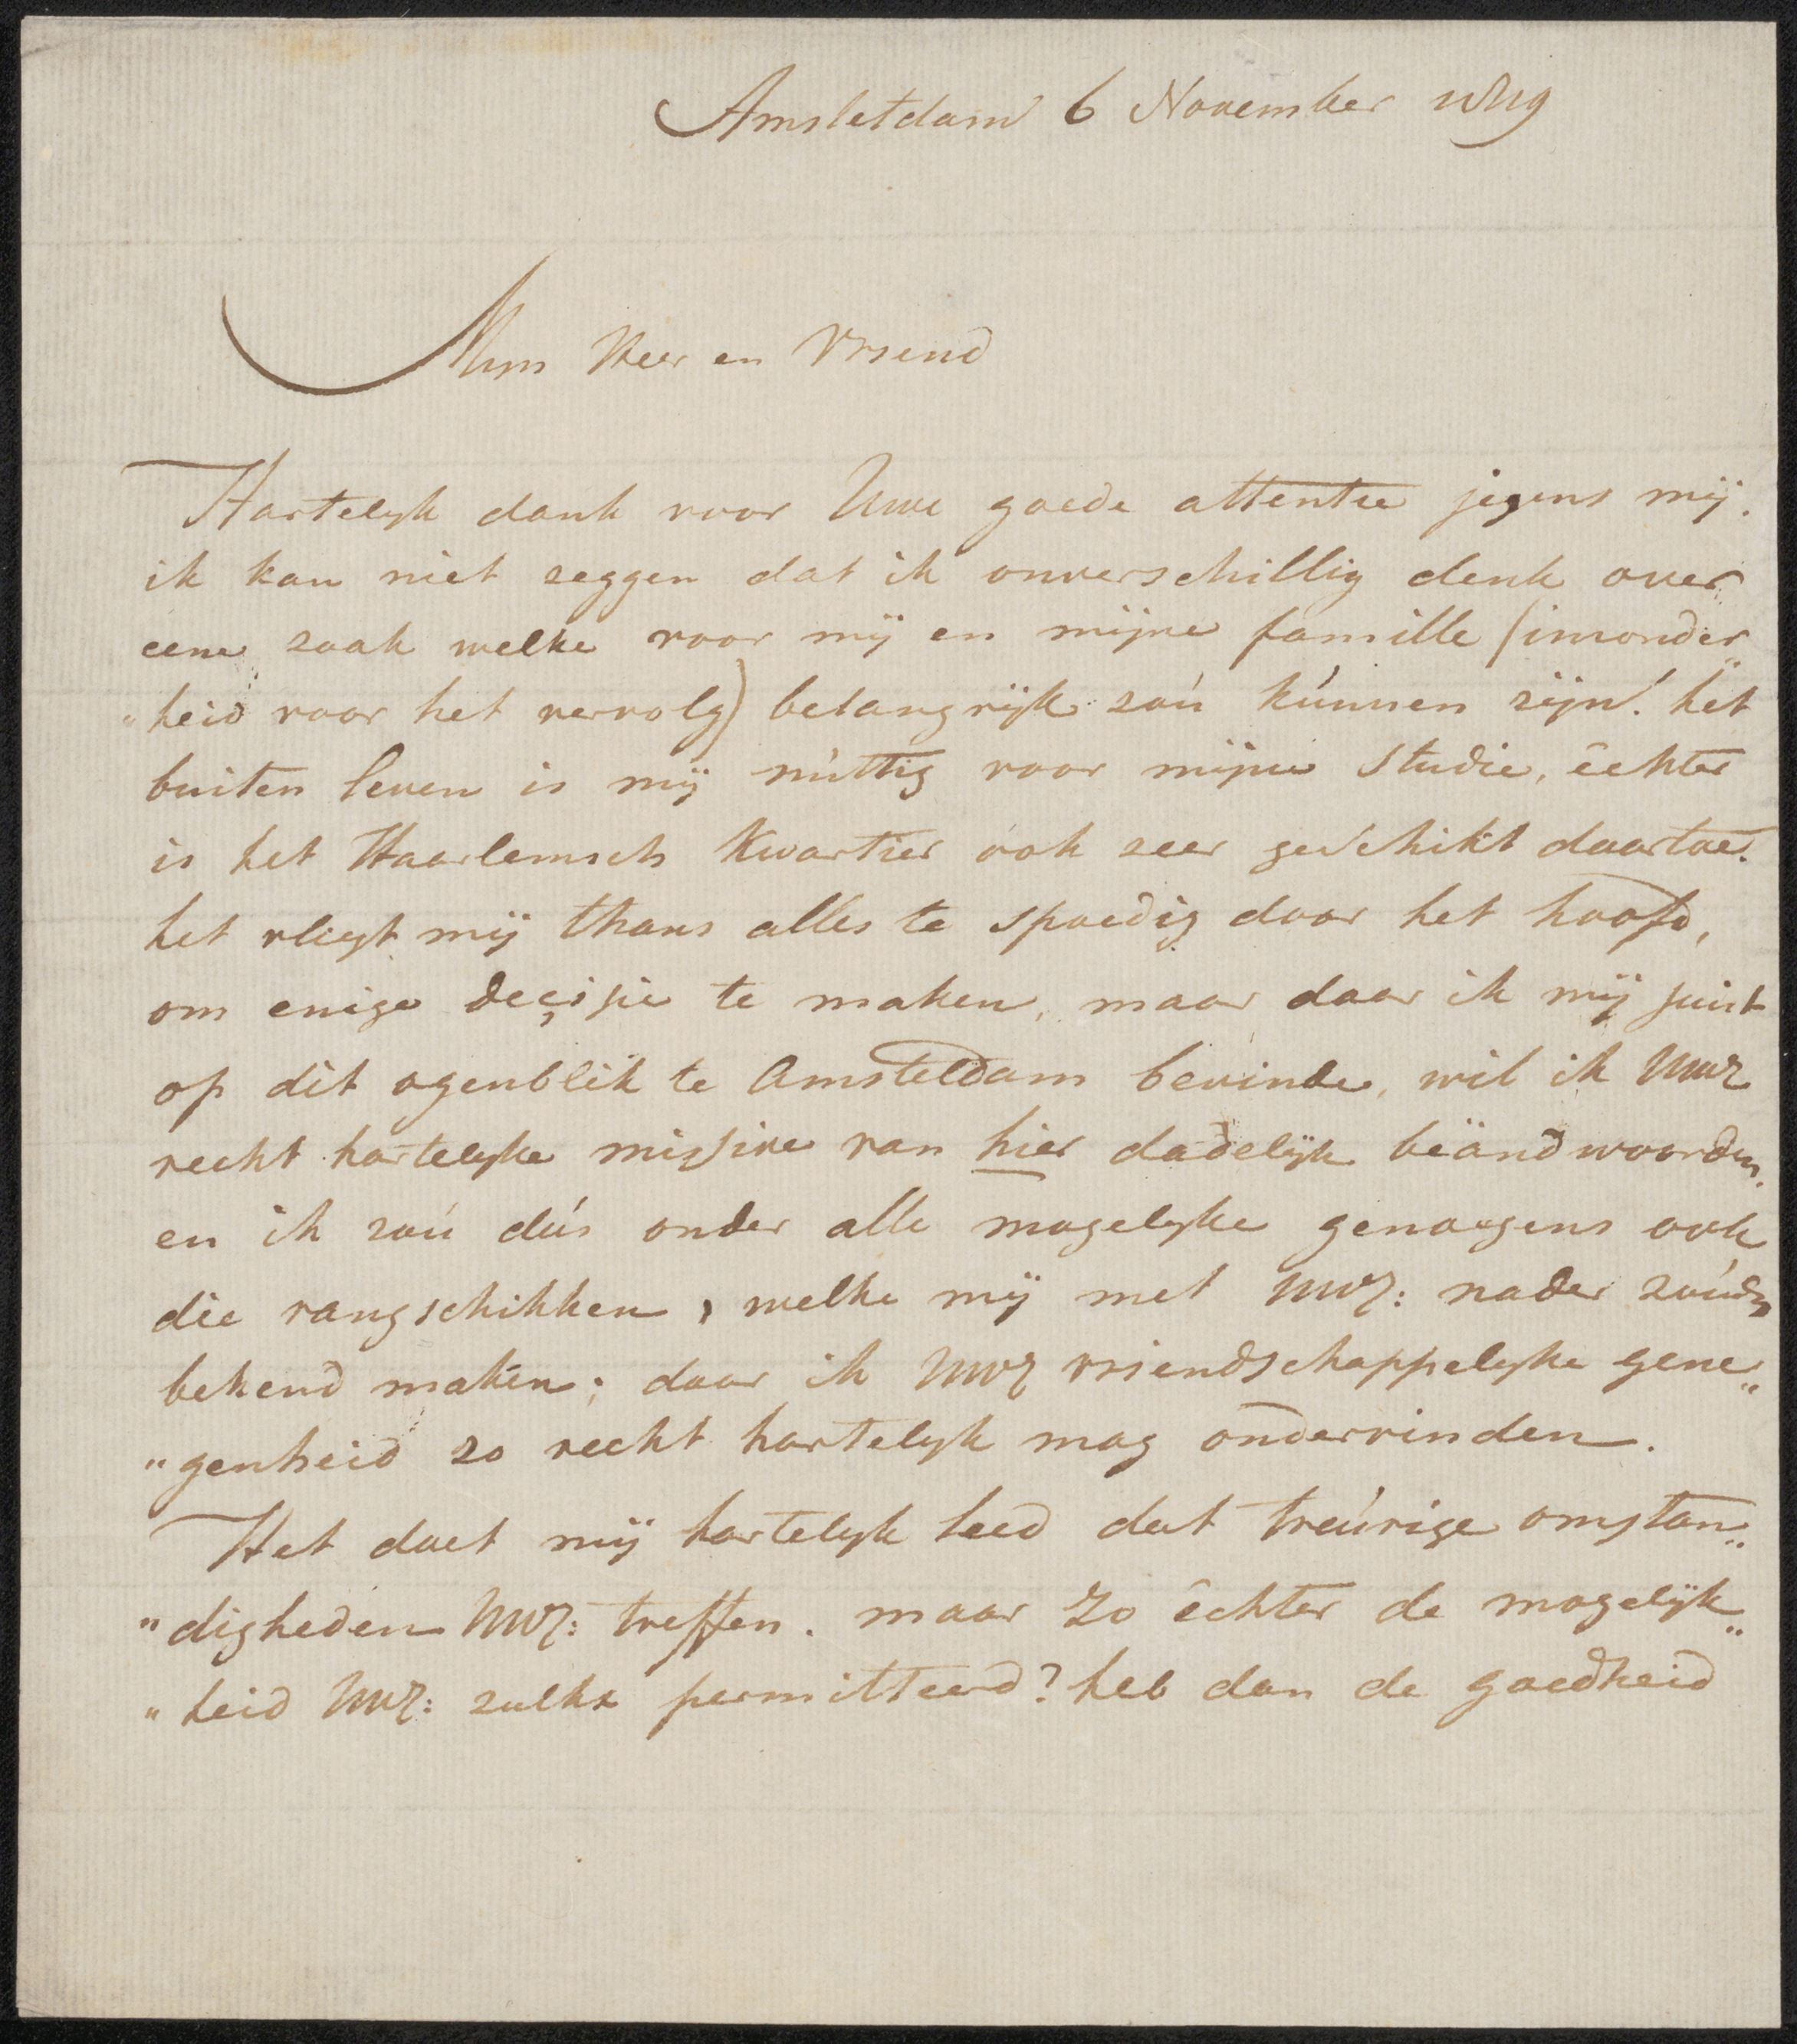 Amsteldam 6 November
Mijn Heer en Vriend
Hartelyk dank voor Uwe goede attentie jegens mij.
ik kan niet zeggen dat ik onverschillig denk over
eene zaak welke voor mij en mijne famille (inzonder„
„heid voor het vervolg) belangrijk zoú kúnnen zijn! het
buiten leven is mij núttig voor mijne Studie, echter
is het Haarlemsch Kwartier ook zeer geschikt daartoe.
het vliegt mij thans alles te spoedig door het hoofd,
om enige deçisie te maken, maar daar ik mij juist
op dit ogenblik te Amsteldam bevinde, wil ik UwE
recht hartelyke missive van hier dadelijk beändwoorden.
en ik zoú dús onder alle mogelyke genoegens ook
die rangschikken, welke mij met UwE: nader zoúden
bekend maken; daar ik UwE vriendschappelyke gene„
„genheid zo recht hartelyk mag ondervinden.
Het doet mij hartelyk leed dat treúrige omstan„
„digheden UwE: treffen. maar Zo echter de mogelijk„
„heid UwE: zulks permitteerd? heb dan de goedheid